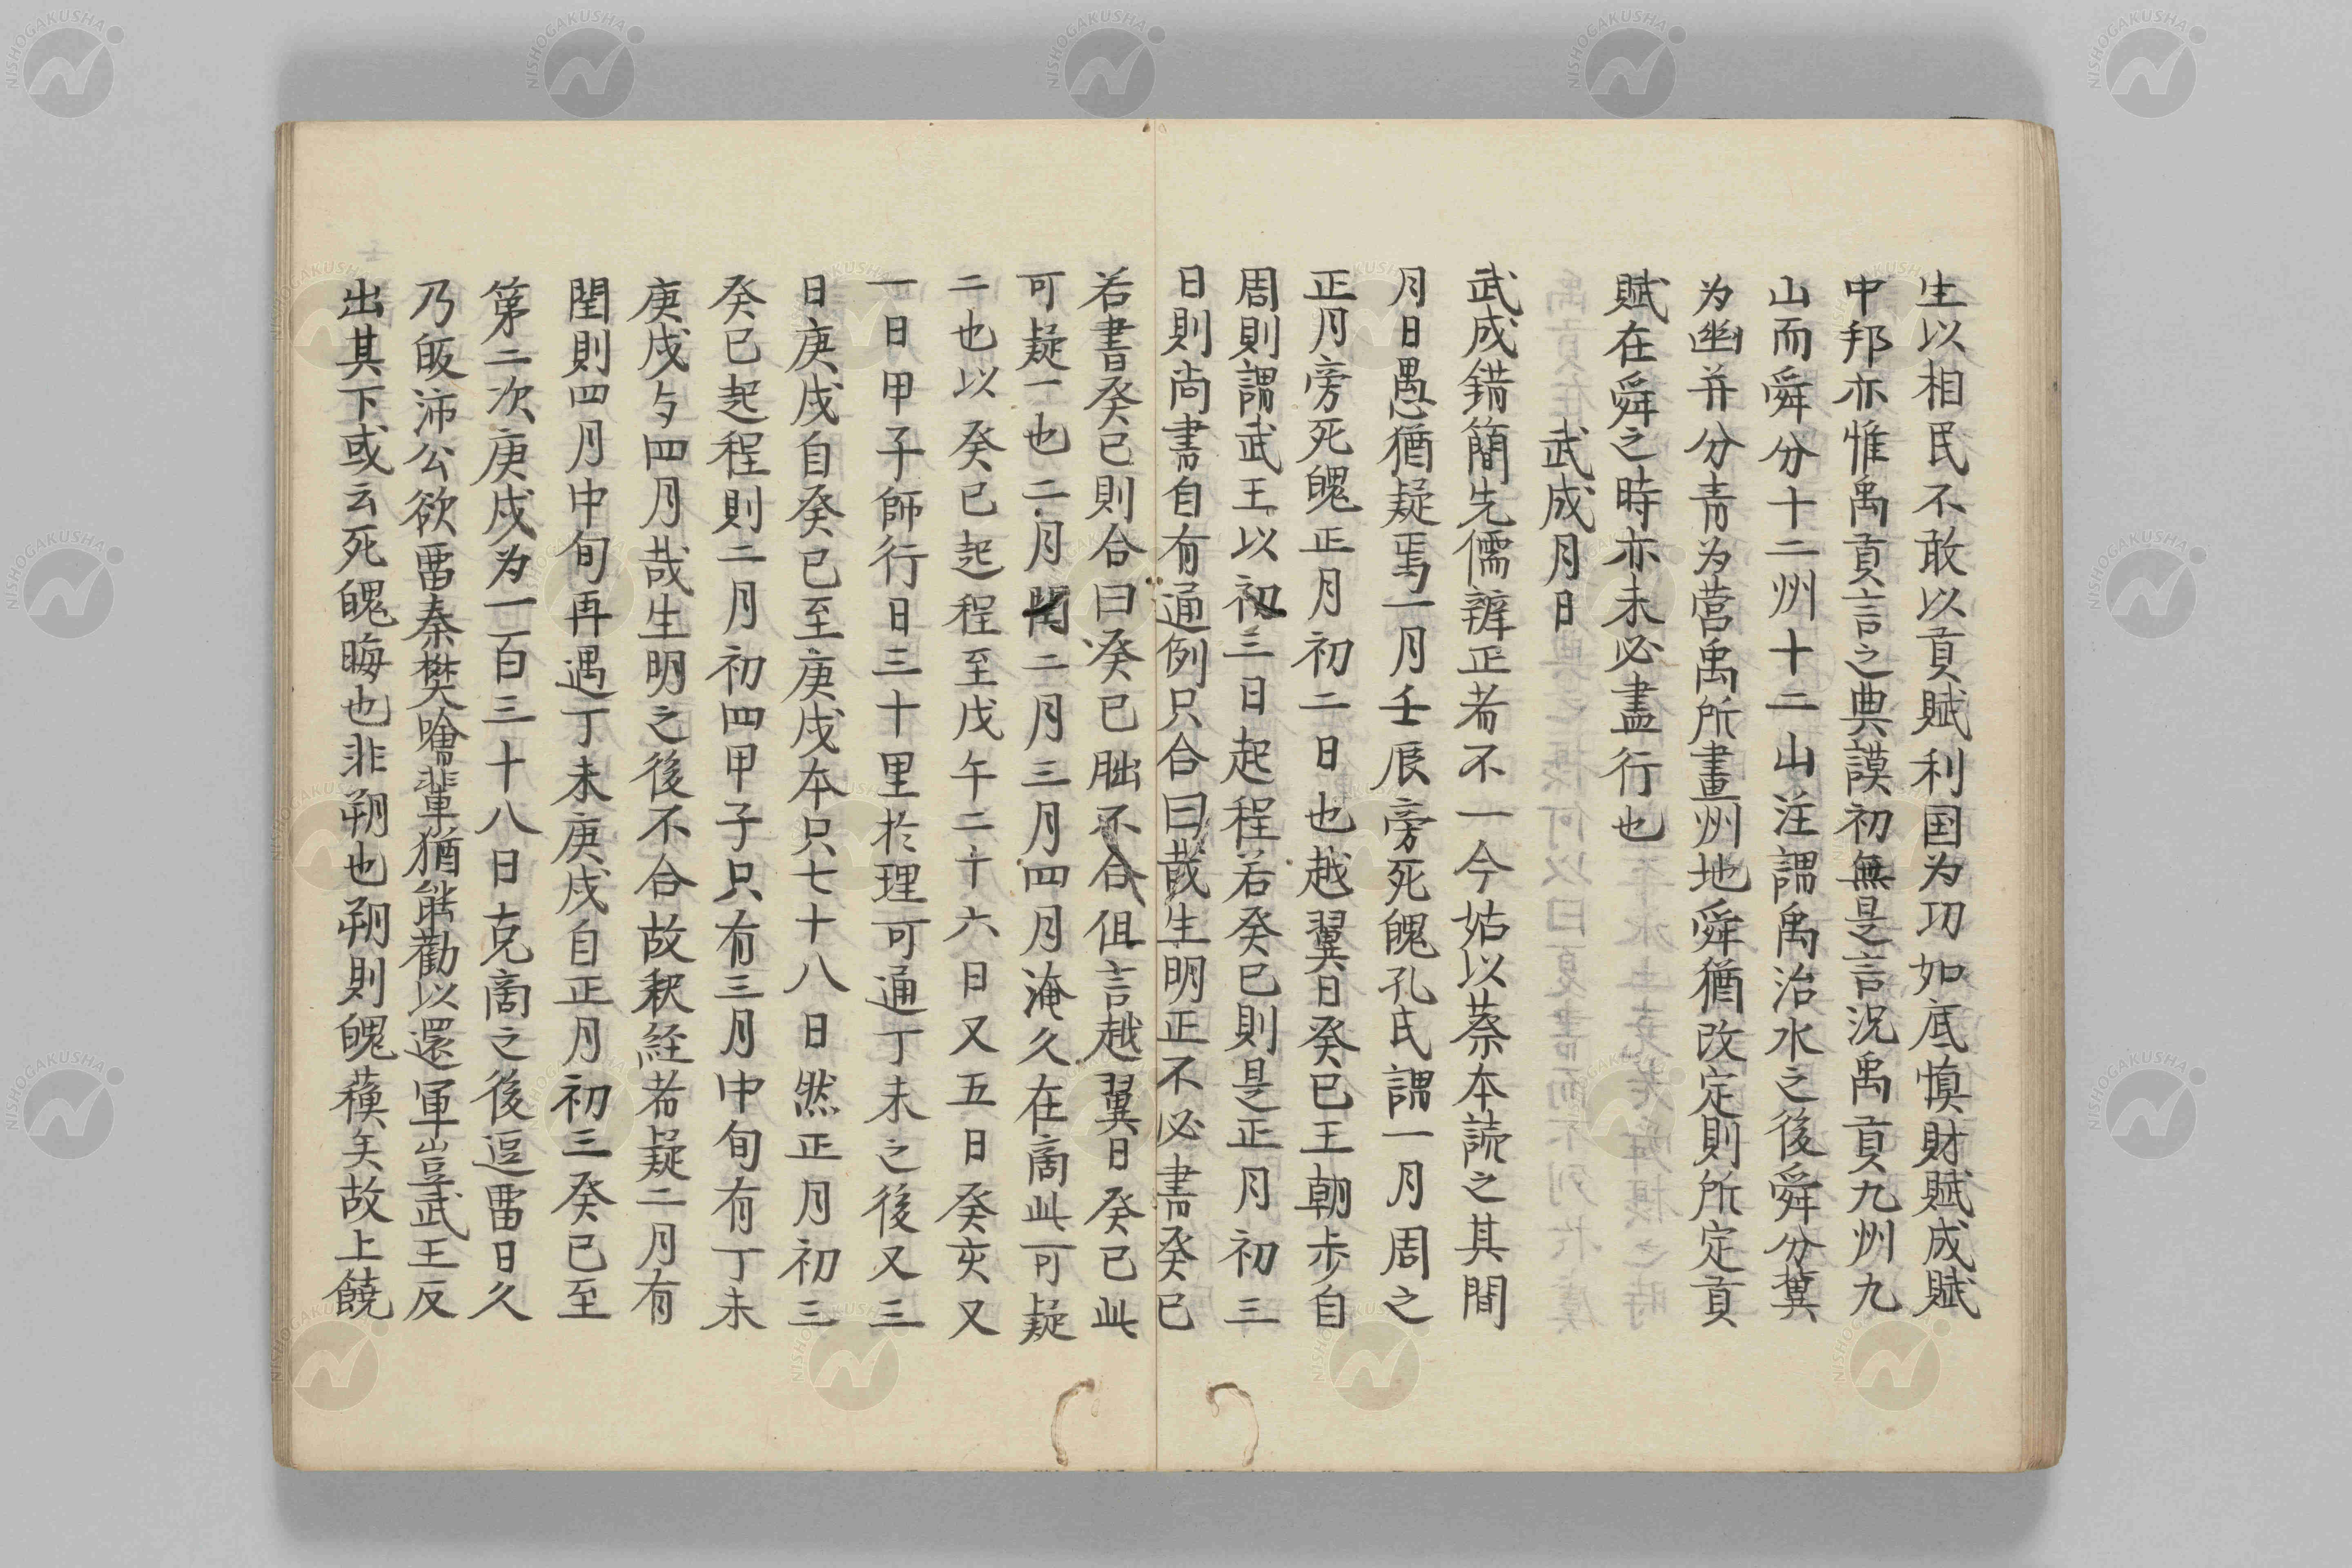 生以相民不敢以貢賦利国为功如底慎財賦成賦
中邦亦惟禹貢言之典謨初無是言況禹貢九州九
山而舜分十二州十二山注謂禹治水之後舜分冀
为幽并分青为营禹所畫州地舜猶改定則所定貢
賦在舜之時亦未必盡行也
武成月日
武成錯簡先儒辨正者不一今姑以蔡本読之其間
月日愚猶疑焉一月壬辰旁死魄孔氏謂一月周之
正月旁死魄正月初二日也越翼日癸巳王朝歩自
周則謂武王以初三日起程若癸巳則是正月初三
日則尚書自有通例只合曰哉生明正不必書癸巳
若書癸巳則合曰癸巳朏不合但言越翼日癸巳此
可疑一也二月閏二月三月四月淹久在商此可疑
二也以癸巳起程至戊午二十六日又五日癸亥又
一日甲子師行日三十里於理可通丁未之後又三
日庚戌自癸巳至庚戌本只七十八日然正月初三
癸巳起程則二月初四甲子只有三月中旬有丁未
庚戌与四月哉生明之後不合故釈経者疑二月有
閏則四月中旬再遇丁未庚戌自正月初三癸巳至
第二次庚戌为一百三十八日克商之後逗畱日久
乃皈沛公欲畱秦樊噲輩猶能勸以還軍豈武王反
出其下或云死魄晦也非朔也朔則魄蘓矣故上饒